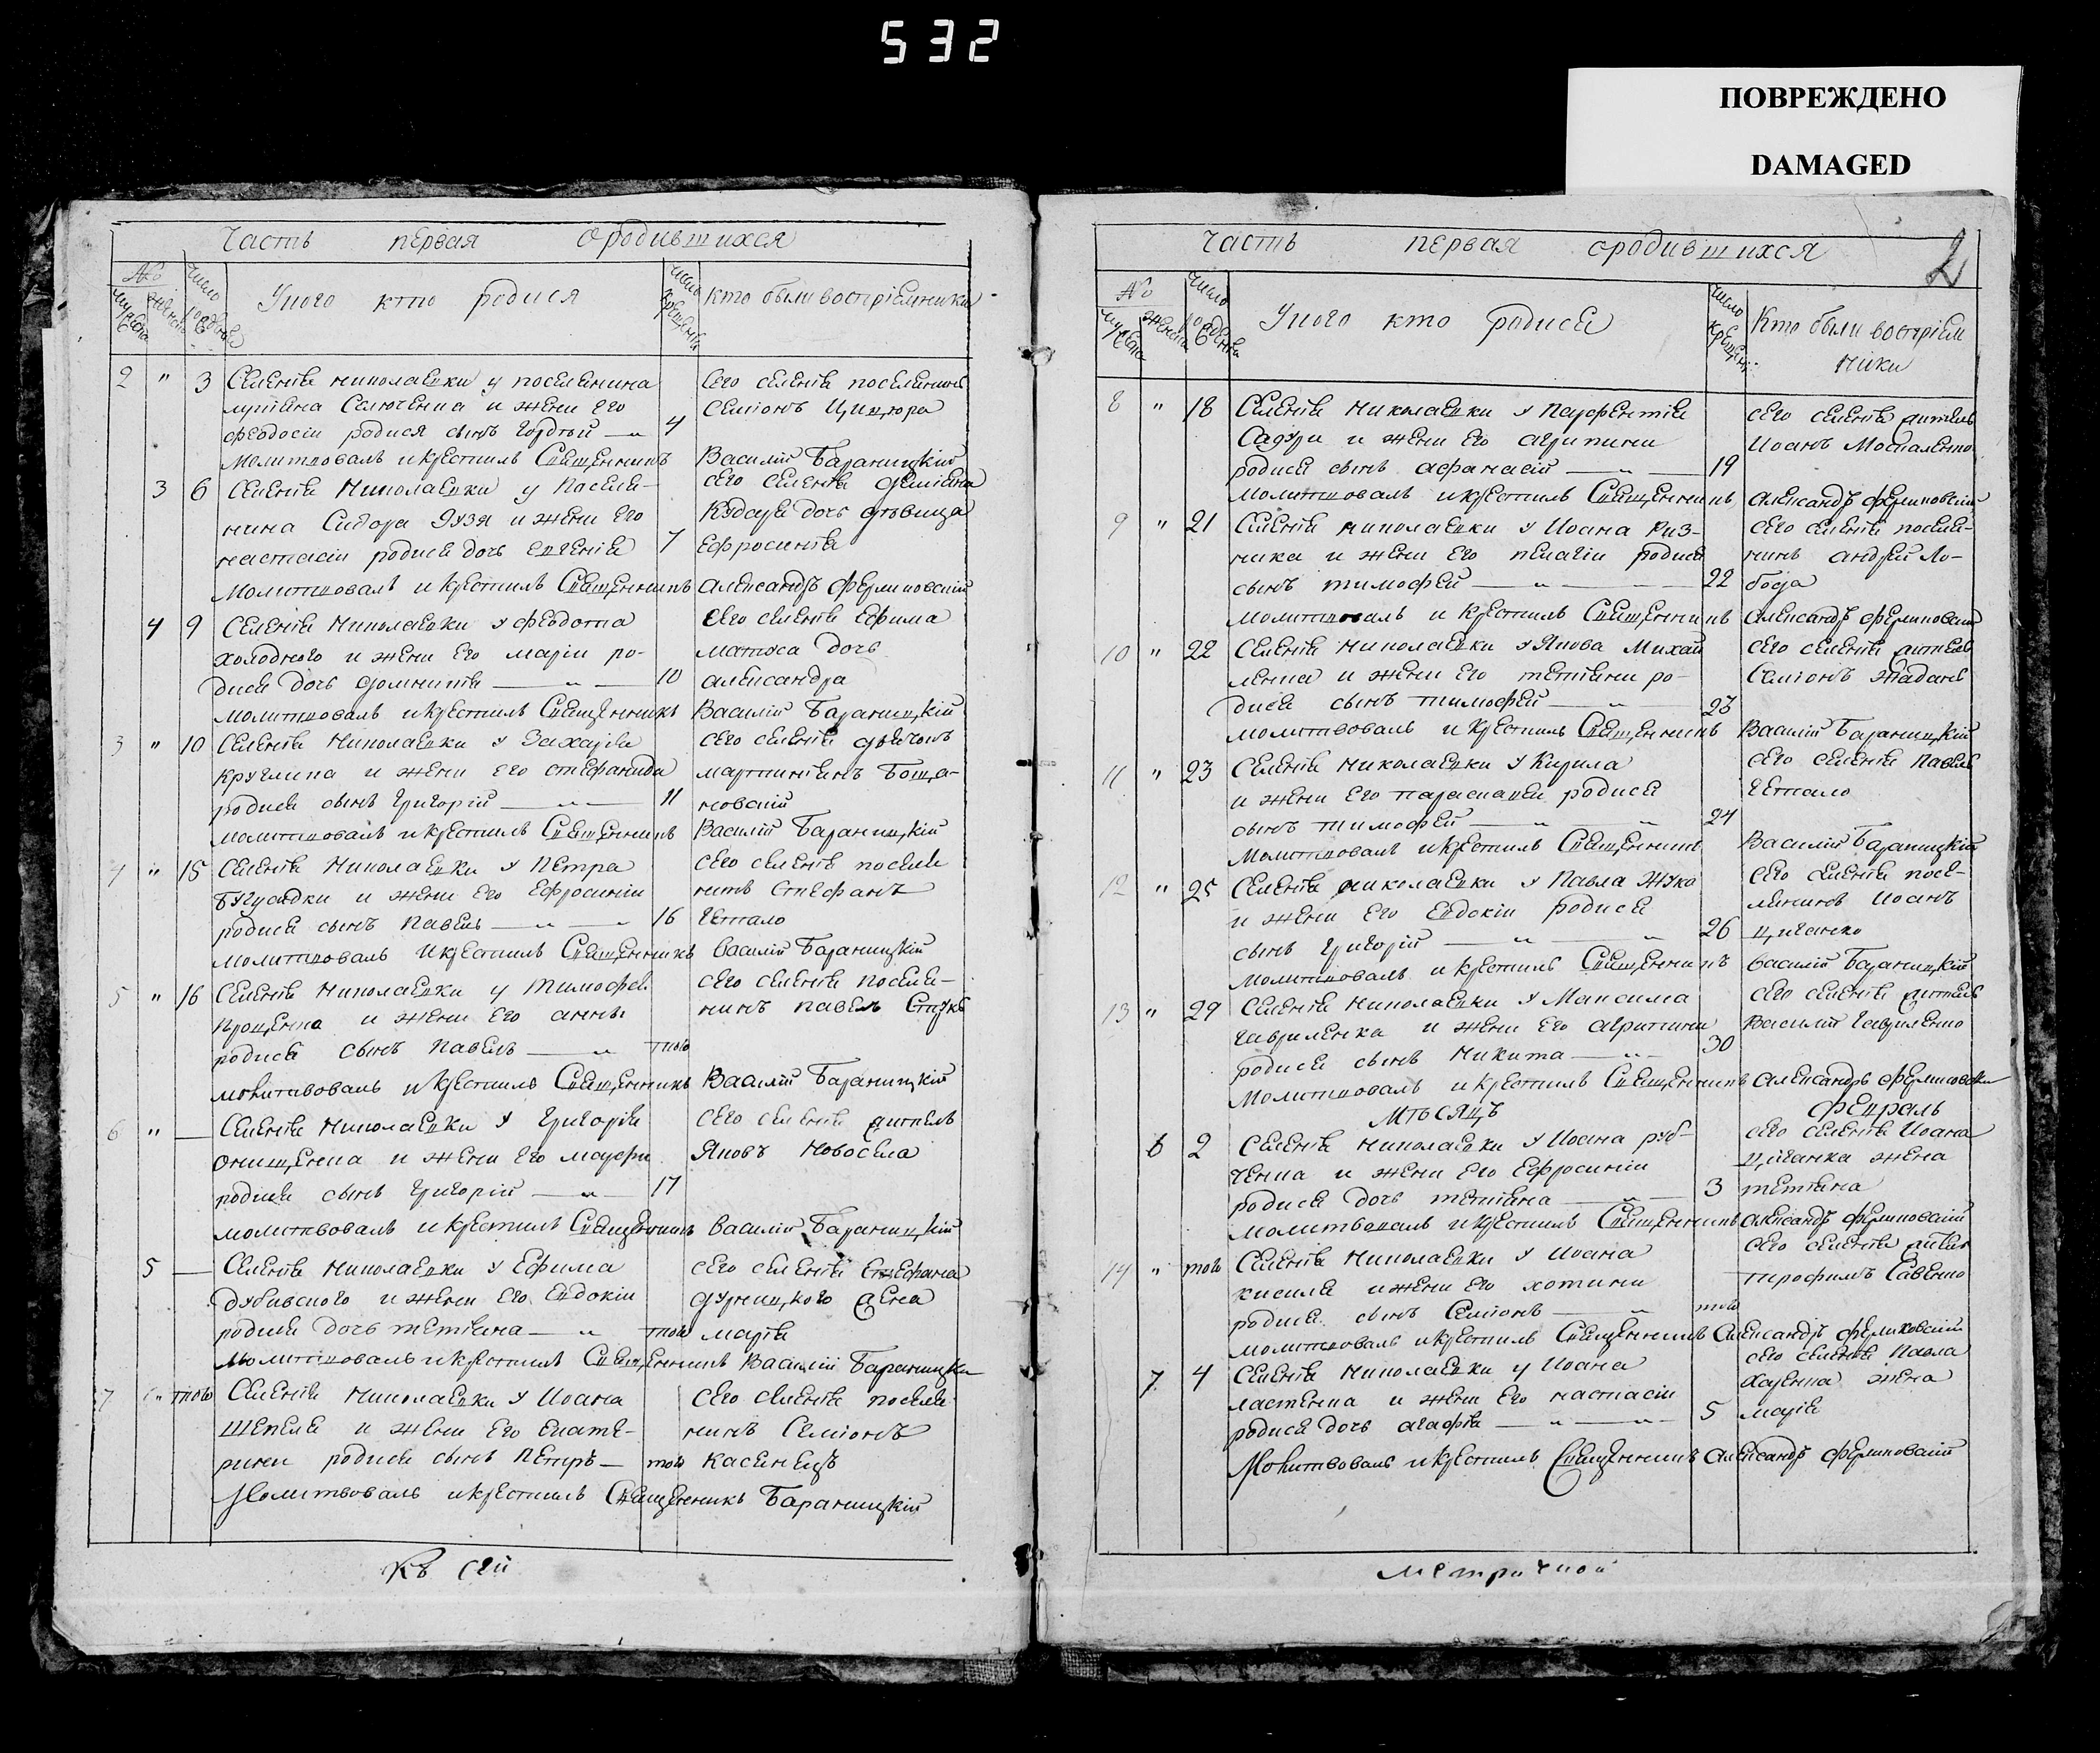 532
ПОВРЕЖДЕНО
DAMAGED
Часть первая ородившихся
№
Число
У кого кто родися
кто были восприемники
2 " 3 Селенія николаевки у поселянина
феодосіи родися сынъ Гордѣй 4
молитвовалъ и крестилъ Священникъ
Сего селенія поселянинъ
Семіонъ Цицюра
Василій Бараницкій
3 6 Селенія Николаевки у Поселя-
нина Сидора Зузя и жени его
настасіи родися дочь Евгенія 7
Молитвовалъ и крестилъ Священникъ
сего селенія Деміяна
Кударя дочь дѣвица
Ефросинія
Александръ
4 9 Селенія Николаевки у Феодота
холодного и жени его маріи ро-
дися дочь домникія 10
молитвовалъ и крестилъ Священникъ
Сего селенія Ефима
матяса дочь
александра
Василій Бараницкій
3 " 10 Селенія Николаевки у Захарія
Круглика и жени его стефаниди
родися сынъ Григорій 11
молитвовалъ и крестилъ Священникъ
сего селенія дьячокъ
мартиніянъ
новскій
Василій Бараницкій
4 " 15 Селенія Николаевки у Петра
и жени его Ефросиніи
родися сынъ Павелъ 16
молитвовалъ и крестилъ Священникъ
сего селенія поселя
нинъ Стефанъ
Гетало
Василій Бараницкій
5 " 16 Селенія Николаевки у Тимофея
Проценка и жени его анны
родися сынъ Павелъ того
молитвовалъ и крестилъ Священникъ
сего селенія поселя-
нинъ павелъ Стукъ
Василій Бараницкій
6 " — Селенія Николаевки у Григорія
Онищенка и жени его марфи
родися сынъ Григорій 17
молитвовалъ и крестилъ Священникъ
сего селенія житель
Яковъ Новосела
Василій Бараницкій
5 — Селенія Николаевки у Ефима
Дубивского и жени его Евдокіи
родися дочь тетіяна того
молитвовалъ и крестилъ Священникъ
сего селенія Стефана
дурницкого жена
марія
Василій Бараницкій
7 " того Селенія Николаевки у Иоана
Шепеля и жени его екате-
рини родися сынъ Петръ того
Молитвовалъ и крестилъ Священникъ Бараницкій
сего селенія поселя
нинъ Семіонъ
касенецъ
Къ сей
2
Часть первая ородившихся
№
Число
У кого кто родися
Кто были восприем
ники
8 " 18 Селенія Николаевки у Парфентія
и жени его агрипини
родися сынъ афанасій 19
молитвовалъ и крестилъ Священникъ
сего селенія житель
Иоанъ Москаленко
александръ
9 " 21 Селенія николаевки у Иоана Риз-
ника и жени его пелагіи родися
сынъ тимофей 22
молитвовалъ и крестилъ Священникъ
сего селенія поселя-
нинъ андрей Ло-
бода
александръ
10 " 22 Селенія Николаевки у Якова Михай
ленка и жени его тетіяни ро-
дися сынъ тимофей 23
молитвовалъ и крестилъ Священникъ
сего селенія житель
Семіонъ Жадань
Василій Бараницкій
11 " 23 Селенія Николаевки у Кирила
и жени его параскевеи родися
сынъ тимофей 24
молитвовалъ и крестилъ Священникъ
сего селенія Павелъ
Гетало
Василій Бараницкій
12 " 25 Селенія николаевки у Павла Жука
и жени его Евдокіи родися
сынъ Григорій 26
молитвовалъ и крестилъ Священникъ
сего селенія посе-
лянинъ Иоанъ
циганко
василій Бараницкій
13 " 29 Селенія Николаевки у Максима
гавриленка и жени его агрипини
родися сынъ Никита 30
Молитвовалъ и крестилъ Священникъ
сего селенія житель
Василій Гавриленко
александръ
Мѣсяцъ Февраль
6 2 Селенія Николаевки у Иоана руб-
ченка и жени его Ефросиніи
родися дочь тетіяна 3
молитвовалъ и крестилъ Священникъ
сего селенія Иоана
циганка жена
тетіяна
александръ
14 " того Селенія Николаевки у Иоана
киселя и жени его хотини
родися сынъ Семіонъ того
молитвовалъ и крестилъ Священникъ
сего селенія житель
трофимъ Савенко
Александръ
7 4 Селенія Николаевки у Иоана
ластенка и жени его настасіи
родися дочь агафія 5
Молитвовалъ и крестилъ Священникъ
сего селенія Павла
жена
марія
Александръ
метричной